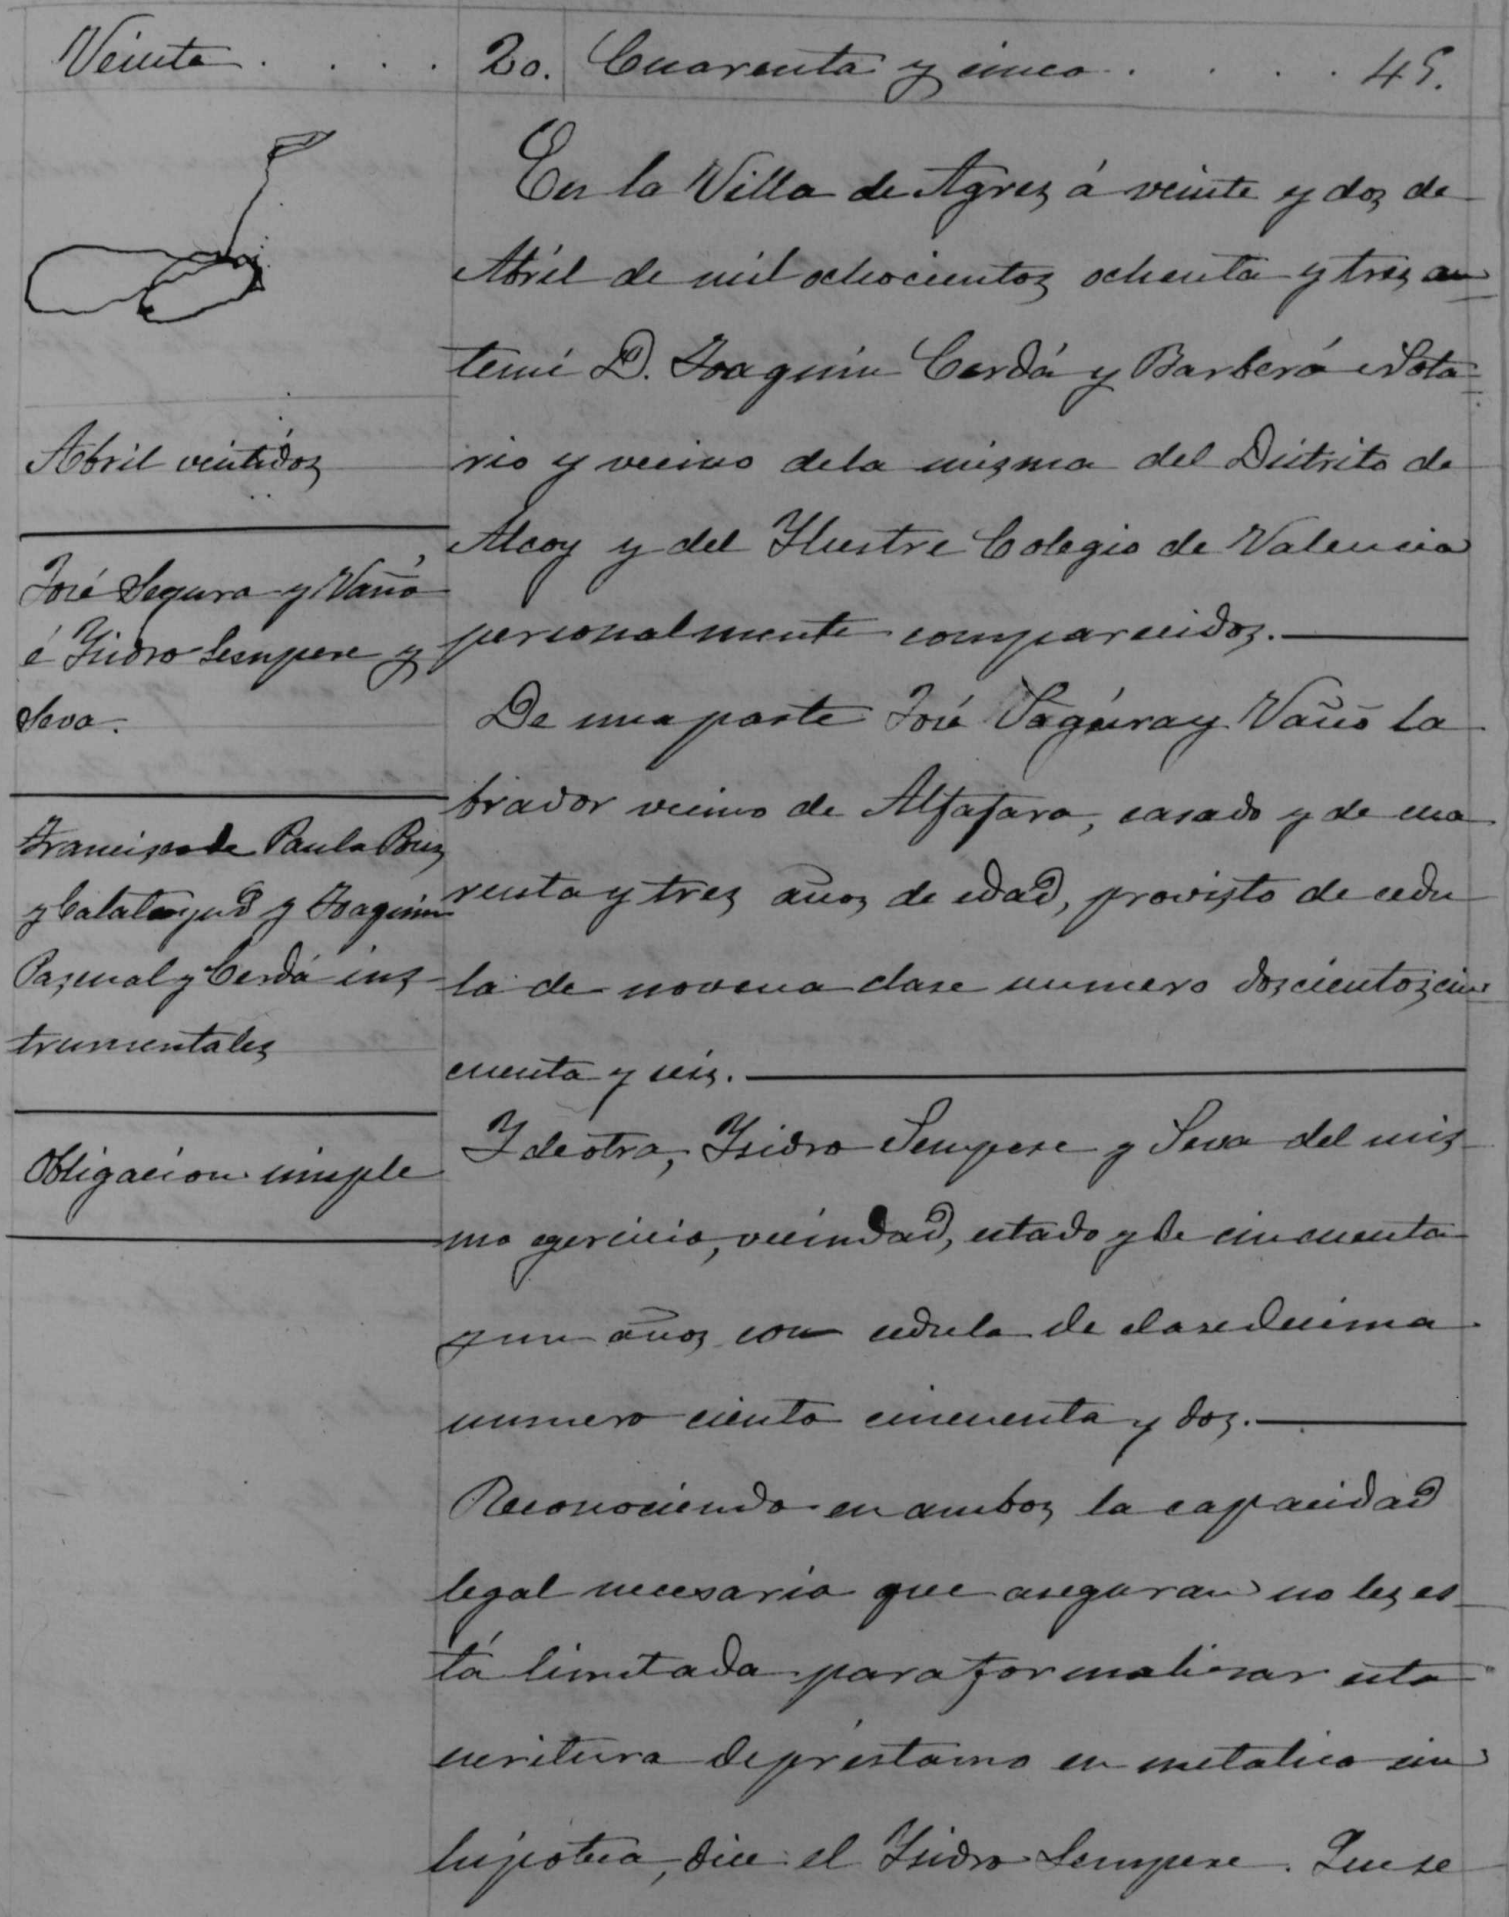 Veinte . . . . 20. Cuarenta y cinco . . . . 45.
Abril veintidos
José Segura y Vañó
é Ysidro Sempere y
Seva.
Francisco de Paula Bus
y Calatayud y Joaquin
Pascual y Cerdá ins
trumentales
Obligacion simple
En la Villa de Agres á veinte y dos de
Abril de mil ochocientos ochenta y tres an
temi D. Joaquin Cerdá y Barberá Nota
rio y vecino dela misma del Distrito de
Alcoy y del Ylustre Colegio de Valencia
personalmente comparecidos.
De una parte José Segura y Vañó la
brador vecino de Alfafara, casado y de cua
renta y tres años de edad, provisto de cedu
la de novena clase numero doscientos cin
cuenta y seis.
Y de otra, Ysidro Sempere y Seva del mis
mo egercicio, vecindad, estado y de cincuenta
y un años con cedula de clase decima
numero ciento cincuenta y dos.
Reconociendo en ambos la capacidad
legal necesaria que aseguran no les es
tá limitada para formalizar esta
escritura de préstamo en metalico sin
hipoteca, dice el Ysidro Sempere. Que se